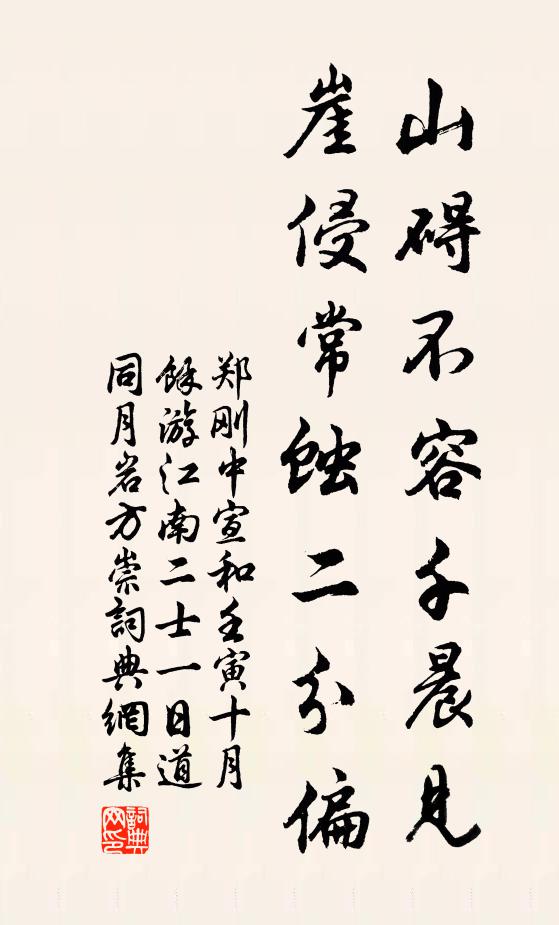 山碍不容千晨见
崖侵常蚀二分偏
郑刚中宣和壬寅十月
馀游江南二士一日道
同月岩方崇詞典網集
詞典网印